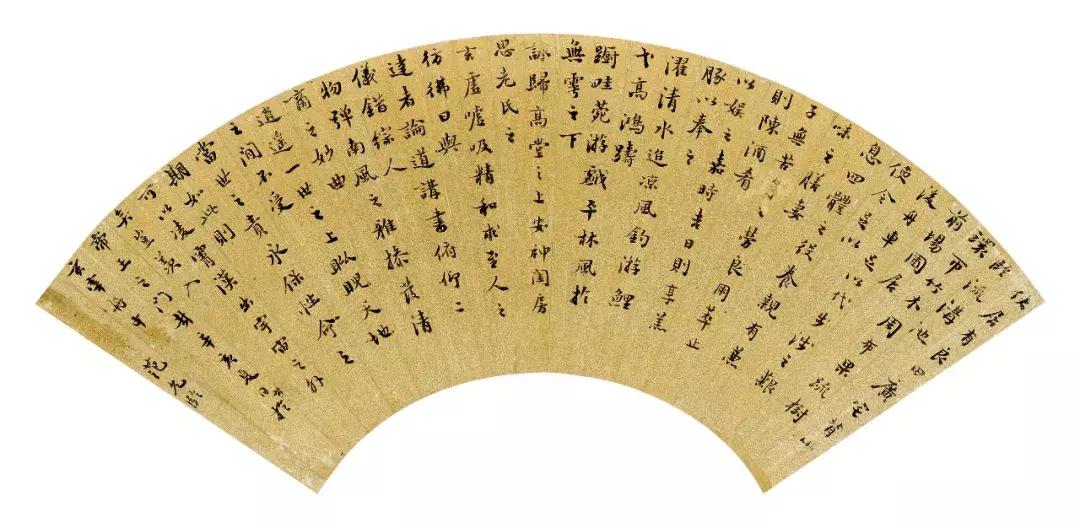 使居有良田廣宅背山
臨流溝池
環帀竹木周布果流樹
前場圃居
後舟車足以代步涉之艱
便令足以
息四體之役養親有兼
味之膳妻
子無苦之勞良用萃止
則陳酒肴
以娛之嘉時吉日則亨羔
豚以奉之
濯清水追涼風釣游鯉
弋高鴻躊
躕畦苑游戲平林風於
無雩之下
詠歸高堂之上安神閨房
思老氏之
玄虛噓吸精和求至人之
彷彿日與
達者論道講書俯仰二
儀錯綜人
物彈南風之雅操發清
商之妙曲
逍遙一世之上睥睨天地
之間不受
當世之責永保性命之
期如此則
可以凌霄漢出宇宙之外
矣豈羨入
帝王之門哉辛亥夏日書於
范允臨